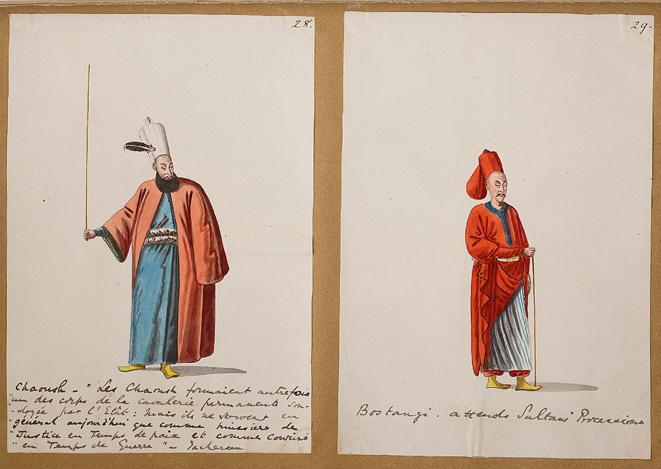 28.
Chaoush - "Les Chaoush formaient autrefois
"un des corps de la cavalerie permanente sou-
"-doyée par l'Etât: mais ils ne servent en
"général aujourd'hui que comme huissiers de
"Justice en temps de paix et comme Couriers
"en Temps de Guerre" -
29.
Bostangi. attends Sultans Processions